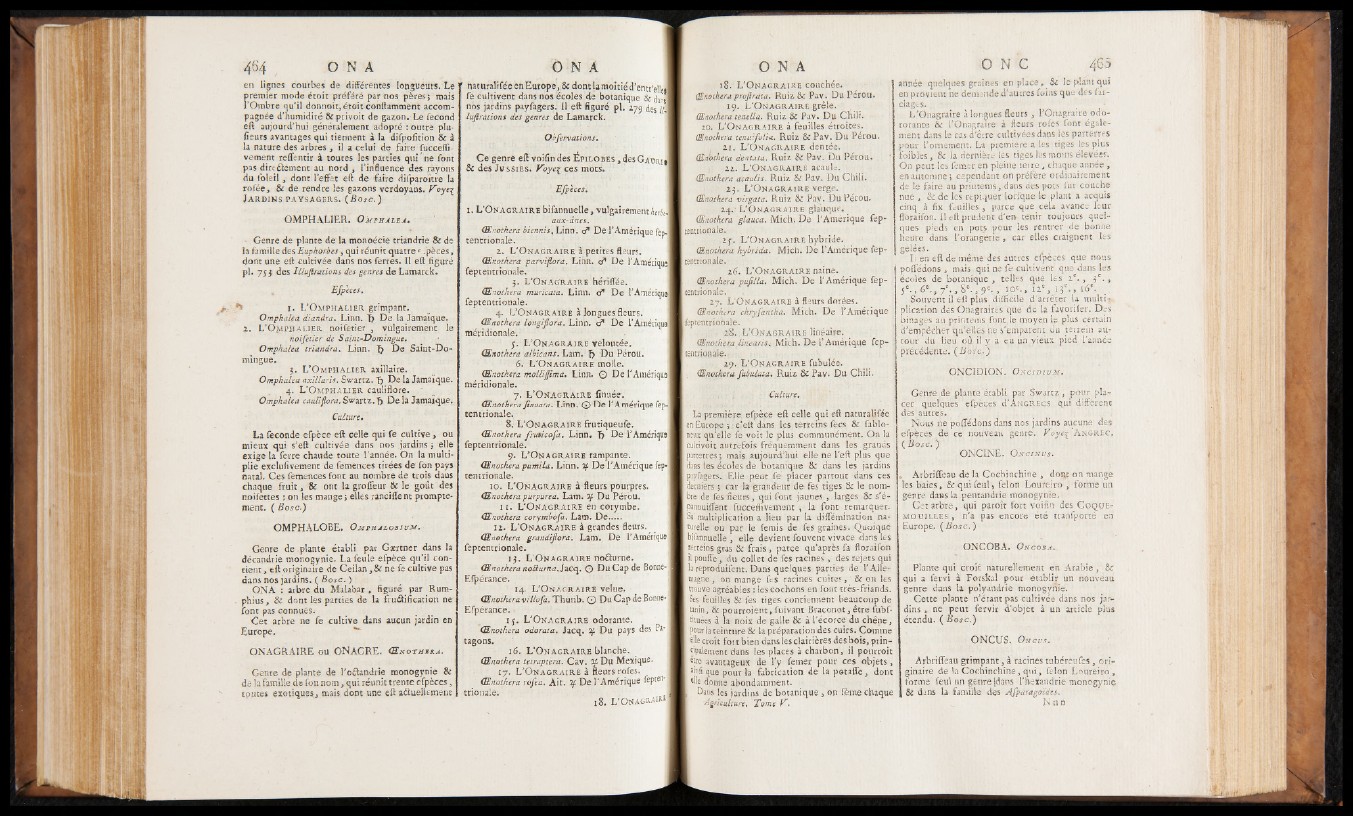 464 O N A
en lignes courbes de différentes longueurs. Le
premier mode étoit préféré par nos pères ; mais
l'Ombre qu'il donnoit, étoit constamment accom-
pagnée d'humidité & privoit de gazon. Le second
est aujourd'hui généralement adopté : outre plu-
sieurs avantages qui tiennent à la disposition & à
la nature des arbres , il a celui de faire successi-
vement ressentir à toutes les parties qui ne sont
pas directement au nord , l'influence des rayons
du soleil , dont l'effet est de faire disparoître la
rosée, & de rendre les gazons verdoyans. Voyez
JARDINS PAYSAGERS. (Bosc.)
OMPHALIER. OMPHALEA.
Genre de plante de la monoécie triandrie & de
la famille des Euphorbes, qui réunit quatre espèces,
dont une est cultivée dans nos serres. Il est figuré
pl. 753 des Illustrations des genres de Lamarck.
Espèces.
1. L'OMPHALIER grimpant.
Omphalea diandra. Linn. ♄ De la Jamaïque.
2. L'OMPHALIER noisetier , vulgairement le
noisetier de Saint-Domingue.
Omphalea triandra. Linn. ♄ De Saint-Do-
mingue.
3. L'OMPHALIER axillaire.
Omphalea axillaris. Swartz. ♄ De la Jamaïque.
4. L'OMPHALIER cauliflore.
Omphalea cauliflora. Swartz. ♄ De la Jamaïque.
Culture.
La seconde espèce est celle qui se cultive , ou
mieux qui s'est cultivée dans nos jardins ; elle
exige la serre chaude toute l'année. On la multi-
plie exclusivement de semences tirées de son pays
natal. Ces semences sont au nombre de trois dans
chaque fruit , & ont la grosseur & le goût des
noisettes : on les mange ; elles rancissent prompte-
ment. ( Bosc.)
OMPHALOBE. OMPHALOBIUM.
Genre de plante établi par Gærtner dans la
décandrie monogynie. La seule espèce qu'il con-
tient, est originaire de Ceilan , & ne se cultive pas
dans nos jardins. ( Bosc. )
ONA : arbre du Malabar , figuré par Rum-
phius , & dont les parties de la fructification ne
sont pas connues.
Cet arbre ne se cultive dans aucun jardin en
Europe.
ONAGRAIRE ou ONAGRE. ŒNOTHERA.
Genre de plante de l'octandrie monogynie &
de la famille de son nom, qui réunit trente espèces,
toutes exotiques, mais dont une est actuellement
O N A
naturalisée en Europe, & dont la moitié d'entr'elles
se cultivent dans nos écoles de botanique & dans
nos jardins paysagers. Il est figuré pl. 279 des Il-
lustrations des genres de Lamarck.
Observations.
Ce genre est voisin des ÉPILOBES , des GAURAS
& des JUSSIES. Voyez ces mots.
Espèces.
1. L'ONAGRAIRE bisannuelle, vulgairement herbe-
aux-ânes.
Œnothera biennis, Linn. ♂ De l'Amérique sep-
tentrionale.
2. L'ONAGRAIRE à petites fleurs.
Œnothera parviflora. Linn. ♂ De l'Amérique
septentrionale.
3. L'ONAGRAIRE hérissée.
Œnothera muricata. Linn. ♂ De l'Amérique
septentrionale.
4. L'ONAGRAIRE à longues fleurs.
Œnothera longiflora. Linn. ♂ De l'Amérique
méridionale.
5. L'ONAGRAIRE veloutée.
Œnothera albicans. Lam. ♄ Du Pérou.
6. L'ONAGRAIRE molle.
Œnothera mollissima. Linn. ☉ De l'Amérique
méridionale.
7. L'ONAGRAIRE sinuée.
Œnothera sinuata. Linn. ☉ De l'Amérique sep-
tentrionale.
8. L'ONAGRAIRE frutiqueuse.
Œnothera fruticosa. Linn. ♄ De l'Amérique
septentrionale.
9. L'ONAGRAIRE rampante.
Œnothera pumila. Linn. ♃ De l'Amérique sep-
tentrionale.
10. L'ONAGRAIRE à fleurs pourpres.
Œnothera purpurea. Lam. ♃ Du Pérou.
11. L'ONAGRAIRE en corymbe.
Œnothera corymbosa. Lam. De.....
12. L'ONAGRAIRE à grandes fleurs.
Œnothera grandiflora. Lam. De l'Amérique
septentrionale.
13. L'ONAGRAIRE nocturne.
Œnothera nocturna. Jacq. ☉ Du Cap de Bonne-
Espérance.
14. L'ONAGRAIRE velue.
Œnothera villosa. Thunb. ☉ Du Cap de Bonne-
Espérance.
15. L'ONAGRAIRE odorante.
Œnothera odorata. Jacq. ♃ Du pays des Pa-
tagons.
16. L'ONAGRAIRE blanche.
Œnothera tetraptera. Cav. ♃ Du Mexique.
17. L'ONAGRAIRE à fleurs roses.
Œnothera rosea. Ait. ♃ De l'Amérique septen-
trionale.
18. L'ONAGRAIRE
O N A
18. L'ONAGRAIRE couchée.
Œnothera prostrata. Ruiz & Pav. Du Pérou.
19. L'ONAGRAIRE grêle.
Œnothera tenella. Ruiz & Pav. Du Chili.
20. L'ONAGRAIRE à feuilles étroites.
Œnothera tenuifolia. Ruiz & Pav. Du Pérou.
21. L'ONAGRAIRE dentée.
Œnothera dentata. Ruiz & Pav. Du Pérou.
22. L'ONAGRAIRE acaule.
Œnothera acaulis. Ruiz & Pav. Du Chili.
23. L'ONAGRAIRE verge.
Œnothera virgata. Ruiz & Pav. Du Pérou.
24. L'ONAGRAIRE glauque.
Œnothera glauca. Mich. De l'Amérique sep-
tentrionale.
25. L'ONAGRAIRE hybride.
Œnothera hybrida. Mich. De l'Amérique sep-
tentrionale.
26. L'ONAGRAIRE naine.
Œnothera pusilla. Mich. De l'Amérique sep-
tentrionale.
27. L'ONAGRAIRE à fleurs dorées.
Œnothera chrysantha. Mich. De l'Amérique
septentrionale.
28. L'ONAGRAIRE linéaire.
Œnothera linearis. Mich. De l'Amérique sep-
tentrionale.
29. L'ONAGRAIRE subulée.
Œnothera subulata. Ruiz & Pav. Du Chili.
Culture.
La première espèce est celle qui est naturalisée
en Europe ; c'est dans les terreins secs & sablo-
neux qu'elle se voit le plus communément. On la
cultivoit autrefois fréquemment dans les grands
parterres ; mais aujourd'hui elle ne l'est plus que
dans les écoles de botanique & dans les jardins
paysagers. Elle peut se placer partout dans ces
derniers ; car la grandeur de ses tiges & le nom-
bre de ses fleurs, qui sont jaunes , larges & s'é-
panouissent successivement , la font remarquer.
Sa multiplication a lieu par la dissémination na-
turelle ou par le semis de ses graines. Quoique
bisannuelle , elle devient souvent vivace dans les
terreins gras & frais , parce qu'après sa floraison
il pousse , du collet de ses racines , des rejets qui
la reproduisent. Dans quelques parties de l'Alle-
magne , on mange ses racines cuites , & on les
trouve agréables : les cochons en sont très-friands.
Ses feuilles & ses tiges contiennent beaucoup de
tanin, & pourroient, suivant Braconot, être subs-
tituées à la noix de galle & à l'écorce du chêne,
pour la teinture & la préparation des cuirs. Comme
elle croît fort bien dans les clairières des bois, prin-
cipalement dans les places à charbon, il pourroit
être avantageux de l'y semer pour ces objets,
ainsi que pour la fabrication de la potasse, dont
elle donne abondamment.
Dans les jardins de botanique, on sème chaque
Agriculture. Tome V.
O N C 465
année quelques graines en place , & le plant qui
en provient ne demande d'autres soins que des sar-
clages.
L'Onagraire à longues fleurs , l'Onagraire odo-
rante & l'Onagraire à fleurs roses sont égale-
ment dans le cas d'être cultivées dans les parterres
pour l'ornement. La première a les tiges les plus
foibles , & la dernière les tiges les moins élevées.
On peut les semer en pleine terre, chaque année ,
en automne ; cependant on préfère ordinairement
de le faire au printems, dans des pots sur couche
nue , & de les repiquer lorsque le plant a acquis
cinq à six feuilles , parce que cela avance leur
floraison. Il est prudent d'en tenir toujours quel-
ques pieds en pots pour les rentrer de bonne
heure dans l'orangerie , car elles craignent les
gelées.
Il en est de même des autres espèces que nous
possédons , mais qui ne se cultivent que dans les
écoles de botanique , telles que les 2e., 3e.,
5e., 6e., 7e., 8e., 9e., 10e., 12e., 13e., 16e.
Souvent il est plus difficile d'arrêter la multi-
plication des Onagraires que de la favoriser. Des
binages au printems sont le moyen le plus certain
d'empêcher qu'elles ne s'emparent du terrein au-
tour du lieu où il y a eu un vieux pied l'année
précédente. (Bosc.)
ONCIDION. ONCIDIUM.
Genre de plante établi par Swartz , pour pla-
cer quelques espèces d'ANGRECS qui diffèrent
des autres.
Nous ne possédons dans nos jardins aucune des
espèces de ce nouveau genre. Voyez ANGREC.
(Bosc.)
ONCINE. ONCINUS.
Arbrisseau de la Cochinchine , dont on mange
les baies, & qui seul, selon Loureiro , forme un
genre dans la pentandrie monogynie.
Cet arbre, qui paroît fort voisin des COQUE-
MOUILLES, n'a pas encore été transporté en
Europe. (Bosc.)
ONCOBA. ONCOBA.
Plante qui croît naturellement en Arabie , &
qui a servi à Forskal pour établir un nouveau
genre dans la polyandrie monogynie.
Cette plante n'étant pas cultivée dans nos jar-
dins , ne peut servir d'objet à un article plus
étendu. (Bosc.)
ONCUS. ONCUS.
Arbrisseau grimpant, à racines tubéreuses, ori-
ginaire de la Cochinchine, qui, selon Loureiro,
forme seul un genre dans l'hexandrie monogynie
& dans la famille des Asparagoïdes.
N n n